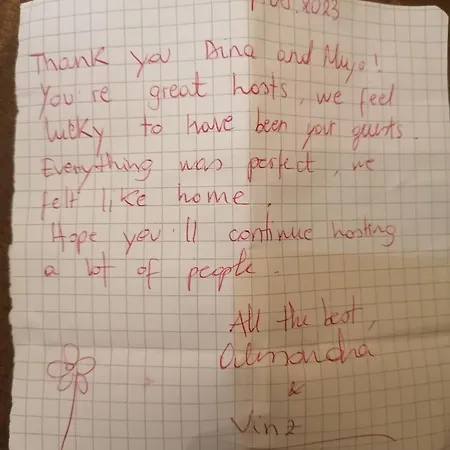 .2023
Thank you Dina and Mujo!
You're great hosts, we feel
lucky to have been your guests.
Everything was perfect, we
felt like home.
Hope you'll continue hosting
a lot of people.
All the best,
&
Vinz